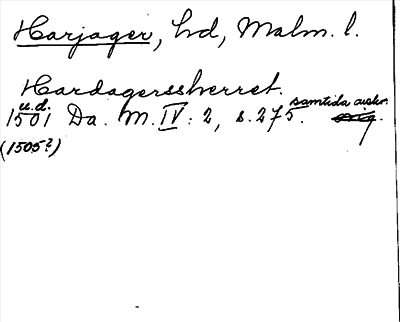 Harjager, hd, Malm. l.
Hardagerssherret.
u.d. samtida avskr.
1501 Da. M. IV: 2, s. 275.
(1505?)